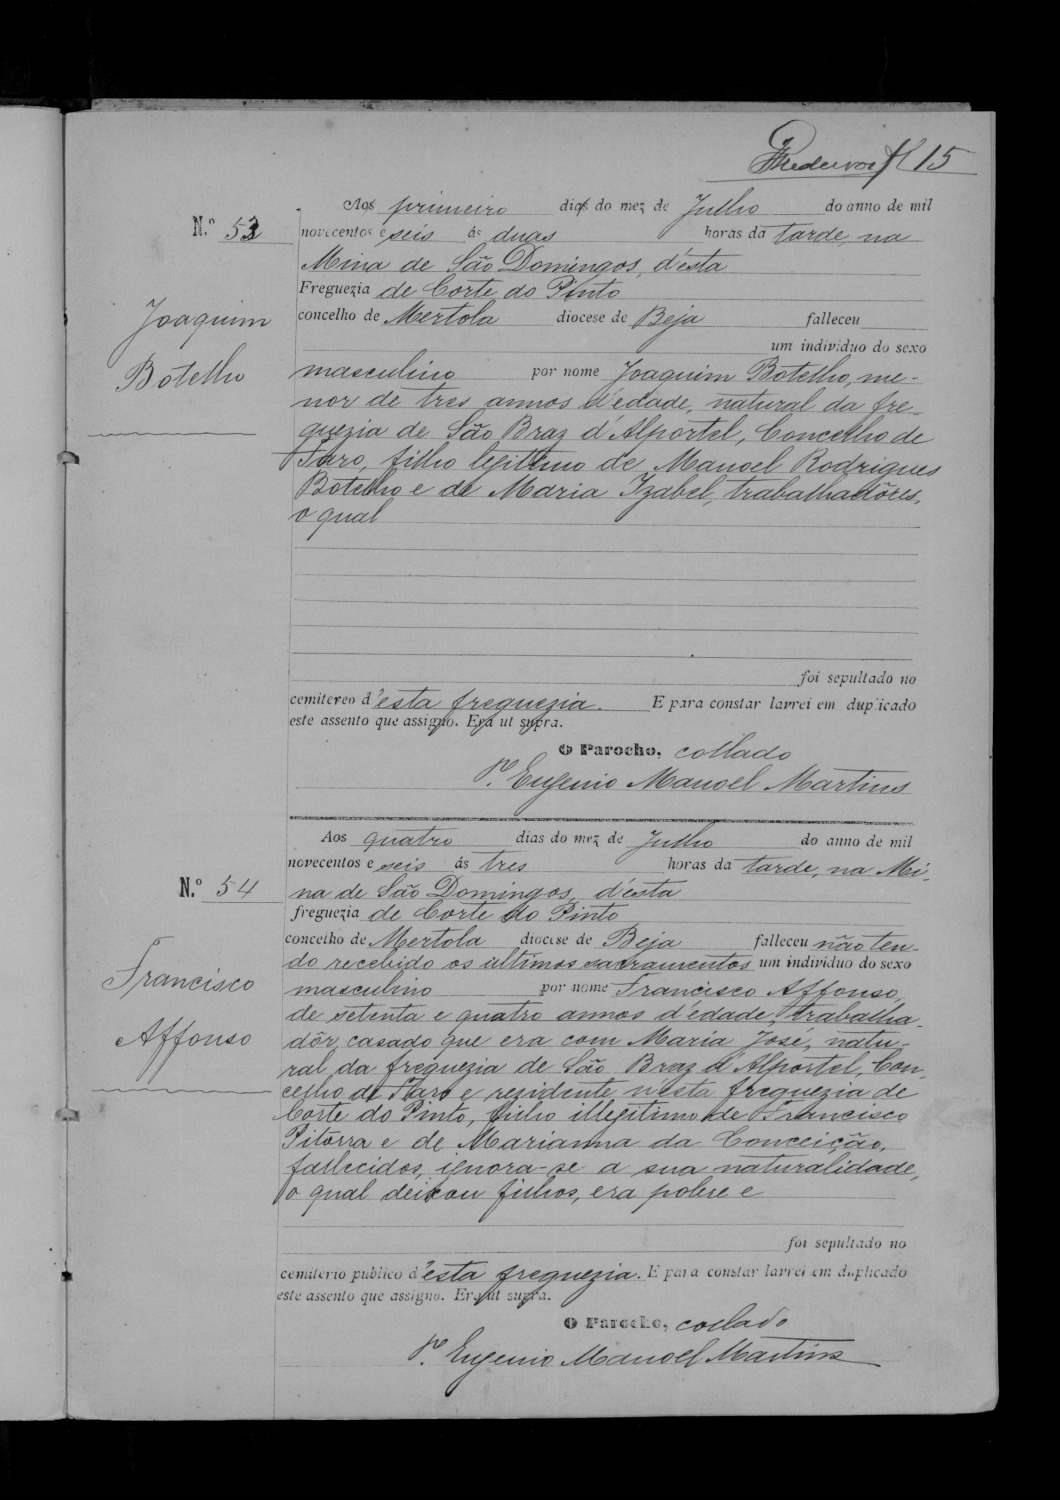 15
Aos primeiro dias do mez de Julho do anno de mil
N.º 53 novecentos e seis ás duas horas da tarde, na
Mina de São Domingos, d'ésta
Freguezia de Corte do Pinto
concelho de Mertola diocese de Beja falleceu
um individuo do sexo
Joaquim
Botelho
masculino por nome Joaquim Botelho, me-
nor de tres annos d'édade, natural da fre-
guezia de São Braz d'Alportel, Concelho de
Faro, filho legitimo de Manoel Rodrigues
Botelho e de Maria Izabel, trabalhadôres,
o qual
foi sepultado no
cemitereo d'ésta freguezia. E para constar lavrei em duplicado
este assento que assigno. Era ut supra.
O Parocho, collado
P.e Eugenio Manoel Martins
Aos quatro dias do mez de Julho do anno de mil
novecentos e seis ás tres horas da tarde, na Mi-
N.º 54 na de São Domingos, d'ésta
freguezia de Corte do Pinto
concelho de Mertola diocese de Beja falleceu não ten-
do recebido os ultimos sacramentos um individuo do sexo
Francisco
Affonso
masculino por nome Francisco Affonso,
de setenta e quatro annos d'édade, trabalha-
dôr, casado que era com Maria José, natu-
ral da freguezia de São Braz d'Alportel, Con-
celho de Faro e rezidente nésta freguezia de
Corte do Pinto, filho illegitimo de Francisco
Pitorra e de Marianna da Conceição,
fallecidos, ignora-se a sua naturalidade,
o qual deixou filhos, era pobre e
foi sepultado no
cemiterio publico d'ésta freguezia. E para constar lavrei em duplicado
este assento que assigno. Era ut supra.
O Parocho, collado
P.e Eugenio Manoel Martins